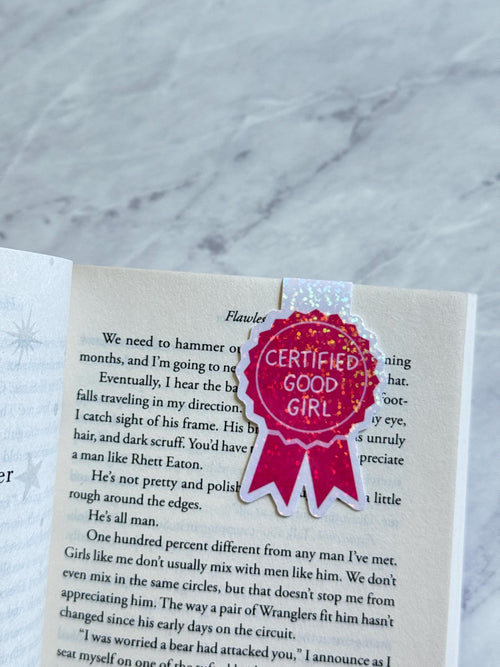 er
Flawles
We need to hammer o ning
months, and I'm going to ne hat.
Eventually, I hear the ba foot-
falls traveling in my direction. y eye,
I catch sight of his frame. His b s unruly
hair, and dark scruff. You'd have preciate
a man like Rhett Eaton.
He's not pretty and polish a little
rough around the edges.
He's all man.
One hundred percent different from any man I've met.
Girls like me don't usually mix with men like him. We don't
even mix in the same circles, but that doesn't stop me from
appreciating him. The way a pair of Wranglers fit him hasn't
changed since his early days on the circuit.
"I was worried a bear had attacked you," I announce as I
seat myself on one of the
CERTIFIED
GOOD
GIRL